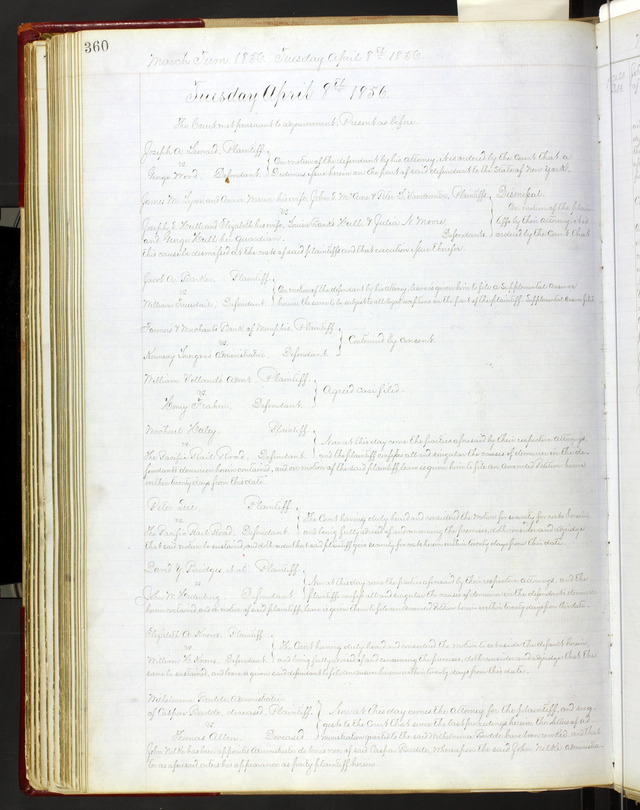 360
March Term 1856. Tuesday April 8th 1856
Tuesday April 8th 1856
The Court met pursuant to adjournment, Present as before
Joseph A. Plaintiff
vs
George Ward, Defendant
On motion of the defendant by his Attorney, it is ordered by the Court that a
Dedimus issue herein on the part of said defendant to the State of New York.
James M. and Maria his wife, John E. & Peter L. Plaintiffs
vs
Joseph E. and Elizabeth his wife, & Julia N. Moore
and George their Guardian. Defendants
Dismissal.
On motion of the plain
tiffs by their Attorney, it is
ordered by the Court that
this cause be dismissed at the costs of said plaintiffs and that execution issue therefor.
Jacob A. Plaintiff
vs
William Defendant
On motion of the defendant by his Attorney, leave is given him to file a Supplemental Answer
herein the same to be subject to all legal exceptions on the part of the plaintiff. Supplemental Answer filed.
Farmers & Merchants Bank of Memphis, Plaintiff
vs
Kennedy Administrator, Defendant
Continued by consent.
William Admr. Plaintiff
vs
Henry Defendant
Agreed case filed.
Michael Haley, Plaintiff
vs
The Pacific Rail Road, Defendant
Now at this day come the parties aforesaid by their respective Attorneys,
and the plaintiff confesses all and singular the causes of demurrer in the de-
fendant's demurrer herein contained, and on motion of the said plaintiff leave is given him to file an Amended Petition herein
within twenty days from this date.
Peter Plaintiff
vs
The Pacific Rail Road, Defendant
The Court having duly heard and considered the motion for security for costs herein
and being fully advised of and concerning the premises, doth consider and adjudge
that said motion be sustained, and doth order that said plaintiff give security for costs herein within twenty days from this date.
David Y. Bridges, et al. Plaintiff
vs
John W. Defendant
Now at this day come the parties aforesaid by their respective Attorneys, and the
plaintiffs confess all and singular the causes of demurrer in the defendants demurrer
herein contained, and on motion of said plaintiff, leave is given them to file an Amended Petition herein within twenty days from this date.
Elizabeth A. Plaintiff
vs
William H. Defendant
The Court having duly heard and considered the motion to set aside the default herein,
and being fully advised of and concerning the premises, doth consider and adjudge that the
same be sustained, and leave is given said defendant to file an answer herein within twenty days from this date.
Wilhelmina Budde, Administratrix
of Casper Budde, deceased, Plaintiff
vs
Thomas Allen, Deceased
Now at this day comes the Attorney for the plaintiff, and sug-
gests to the Court that since the last proceedings herein the letters of ad-
ministration granted to the said Wilhelmina Budde have been revoked, and that
John has been appointed Administrator de bonis non of said Casper Budde, Whereupon the said John Administra-
tor as aforesaid enters his appearance as party plaintiff herein.